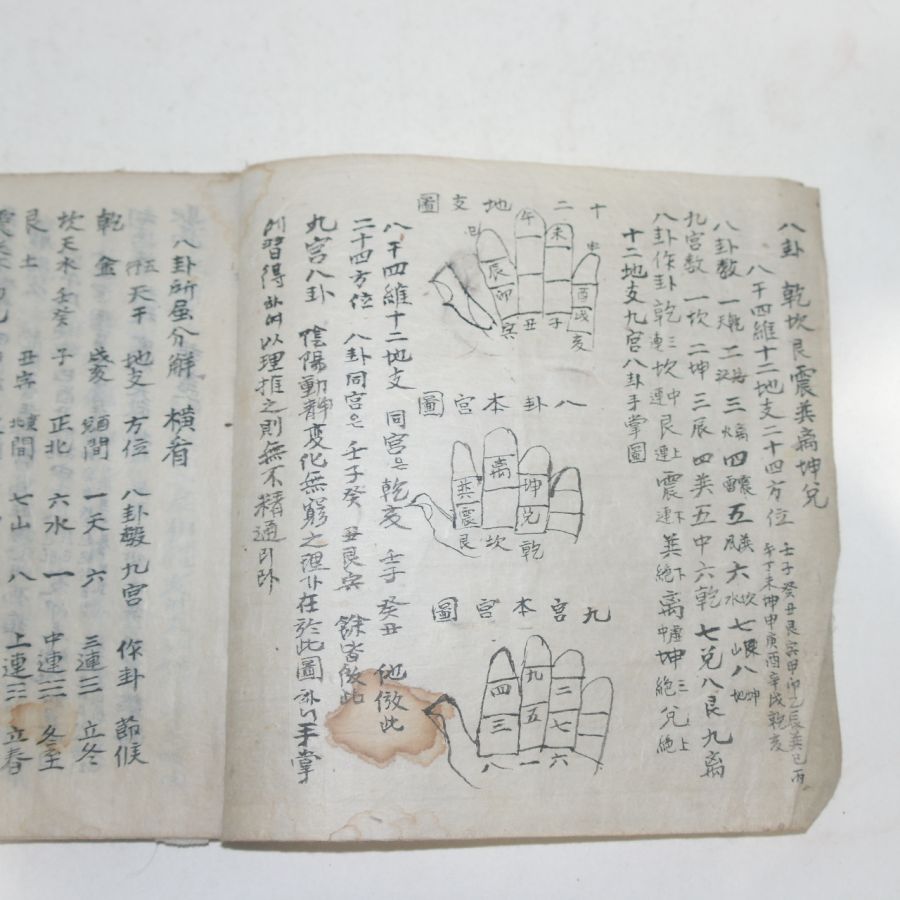 八卦 乾坎艮震巽离坤兌
八干四維十二地支二十四方位
壬子癸丑艮寅甲卯乙辰巽巳丙
午丁未坤申庚酉辛戌乾亥
八卦數 一天乾 二澤兌 三火离 四雷震 五風巽 六水坎 七山艮 八地坤
九宮數 一坎 二坤 三辰 四巽 五中 六乾 七兌 八艮 九离
八卦作卦 乾三連 坎中連 艮上連 震下連 巽下絶 离中虛 坤三絶 兌上絶
十二地支九宮八卦手掌圖
十二地支圖
巳 午 未 申
辰 酉
卯 戌
寅 丑 子 亥
八卦本宮圖
巽 离 坤
震 兌
艮 坎 乾
九宮本宮圖
四 九 二
三 五 七
八 一 六
八干四維十二地支 同宮은 乾亥 壬子 癸丑 他倣此
二十四方位 八卦同宮은 壬子癸 丑艮寅 餘皆倣此
九宮八卦 陰陽動靜變化無窮之理가 在於此圖하니 手掌
에 習得하여 以理推之則無不精通
八卦所屬分解 橫看
五行 天干 地支 方位 八卦數 九宮 作卦 節候
乾 金 戌亥 間 一天 六 三連☰ 立冬
坎 水 壬癸 子 正北 六水 一 中連☵ 冬至
艮 土 丑寅 間 七山 八 上連☶ 立春